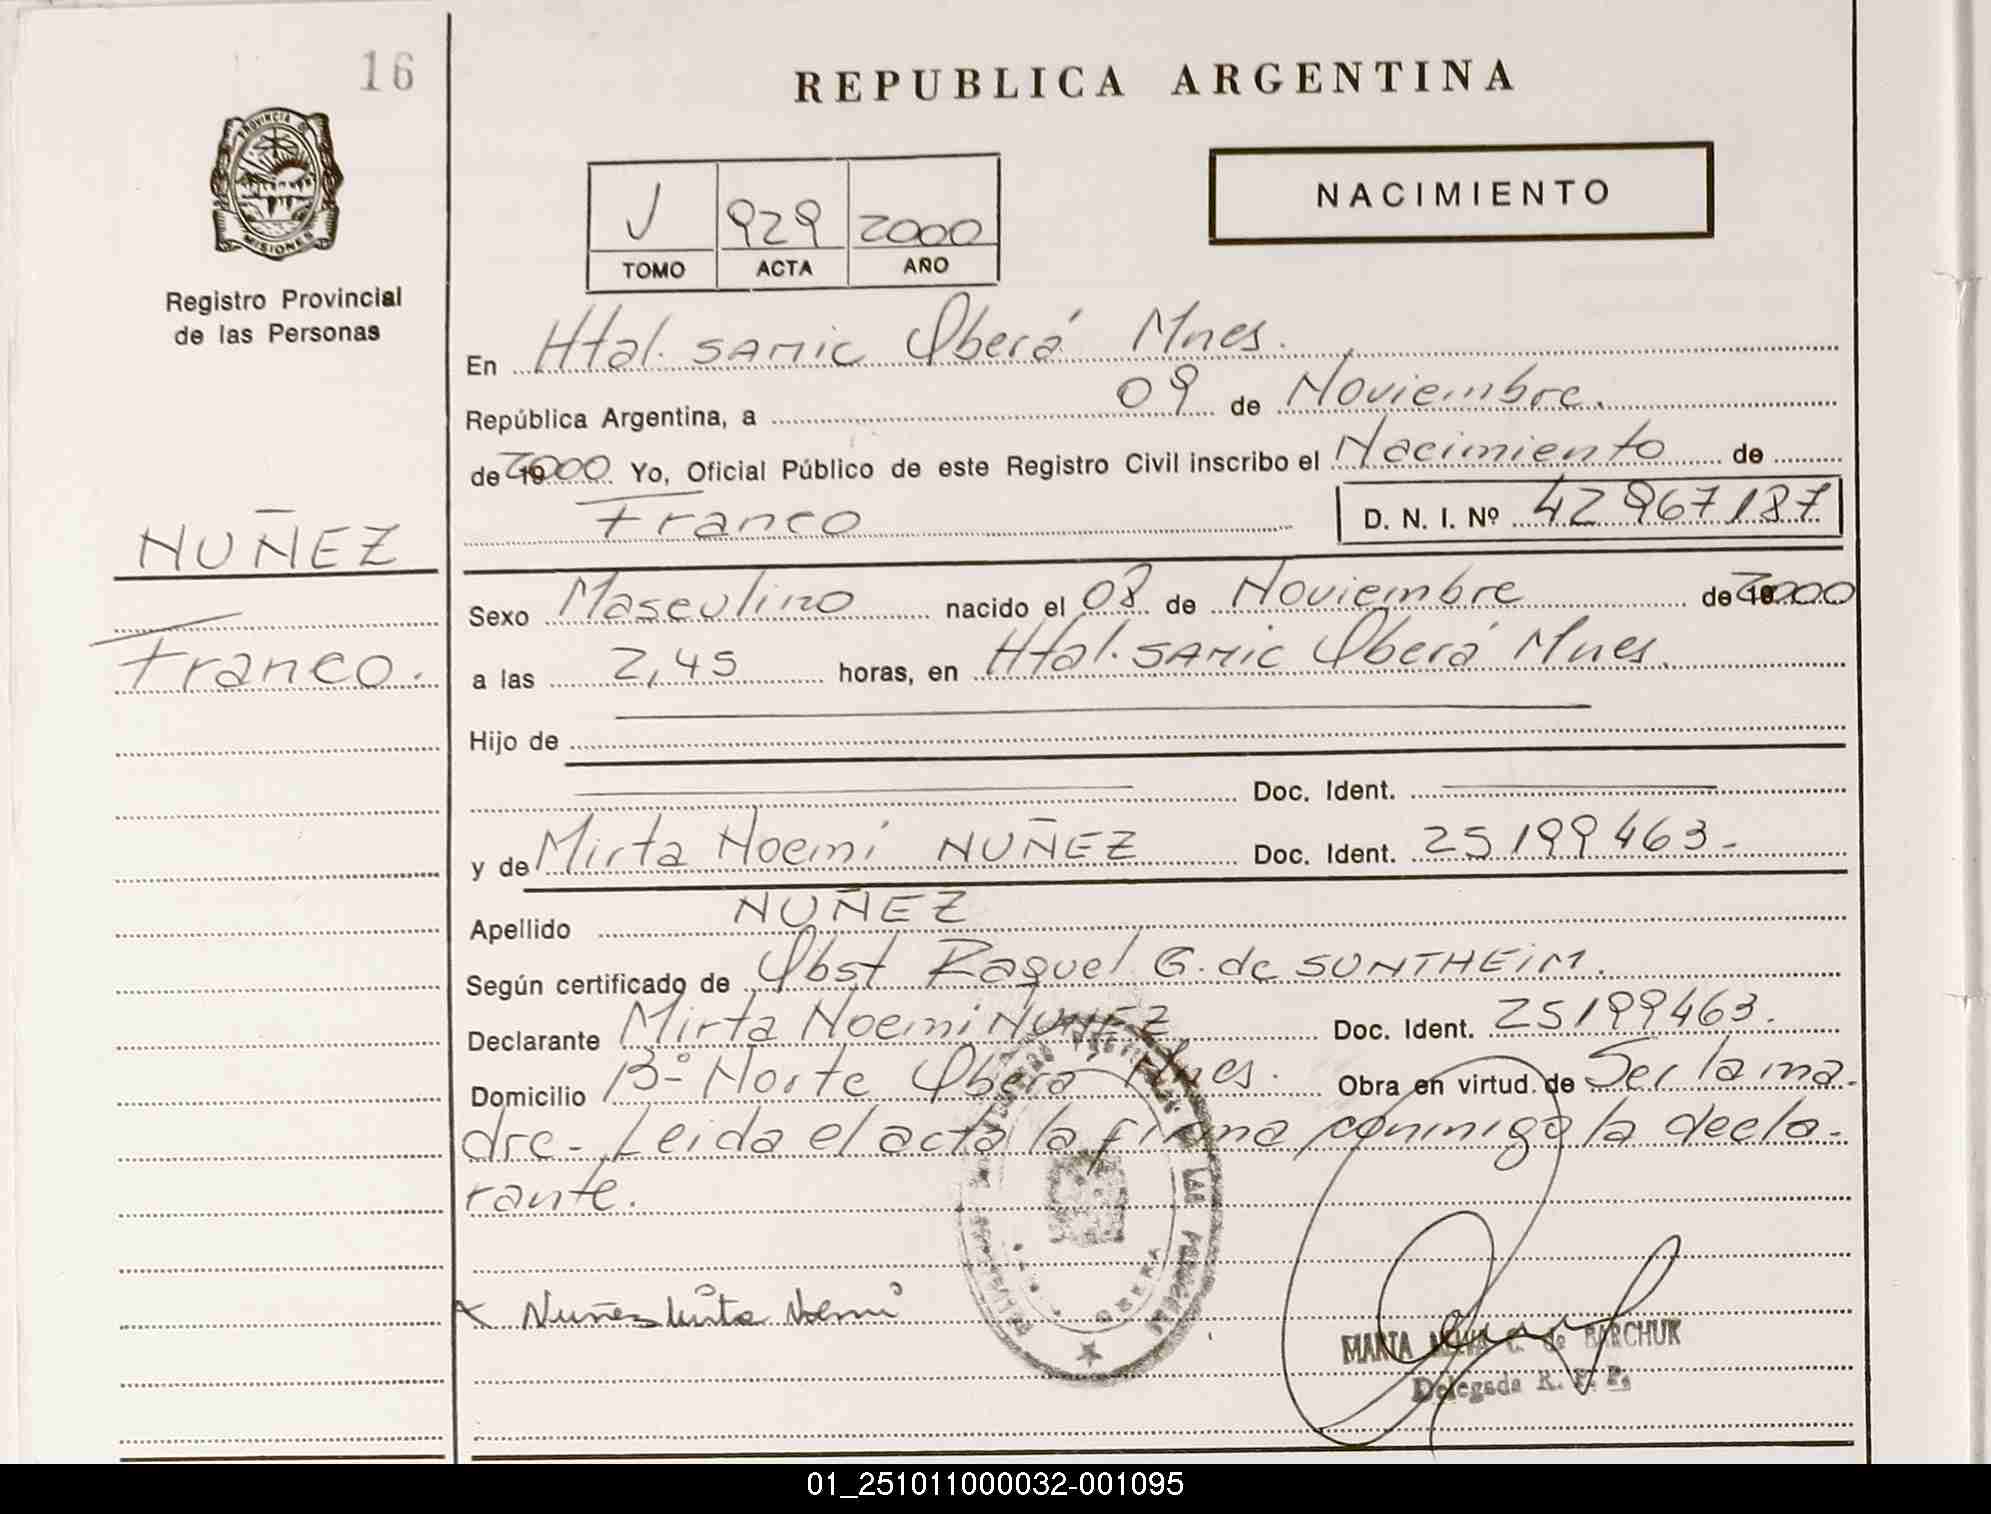 16
REPUBLICA ARGENTINA
PROVINCIA D
MISIONES
NACIMIENTO
J 929 2000
TOMO ACTA AÑO
Registro Provincial
de las Personas
En Htal. SAMIC Oberá Mnes.
República Argentina, a 09 de Noviembre.
de 2000 Yo, Oficial Público de este Registro Civil inscribo el Nacimiento de
Franco D. N. I. Nº 42 967187
NUÑEZ
Franco.
Sexo Masculino nacido el 08 de Noviembre de 2000
a las 2,45 horas, en Htal. SAMIC Oberá Mnes.
Hijo de
Doc. Ident.
y de Mirta Noemi NUÑEZ Doc. Ident. 25199463.-
Apellido NUÑEZ
Según certificado de Obst Raquel G. de SUNTHEIM.
Declarante Mirta Noemi NUÑEZ Doc. Ident. 25199463.
Domicilio Bº- Norte Oberá Mnes. Obra en virtud de Ser la ma-
dre- Leida el acta la firma conmigo la decla-
rante.
Nuñez Mirta Noemi
OBERA
MARTA C. de BARCHUK
Delegada R. P. P.
01_251011000032-001095